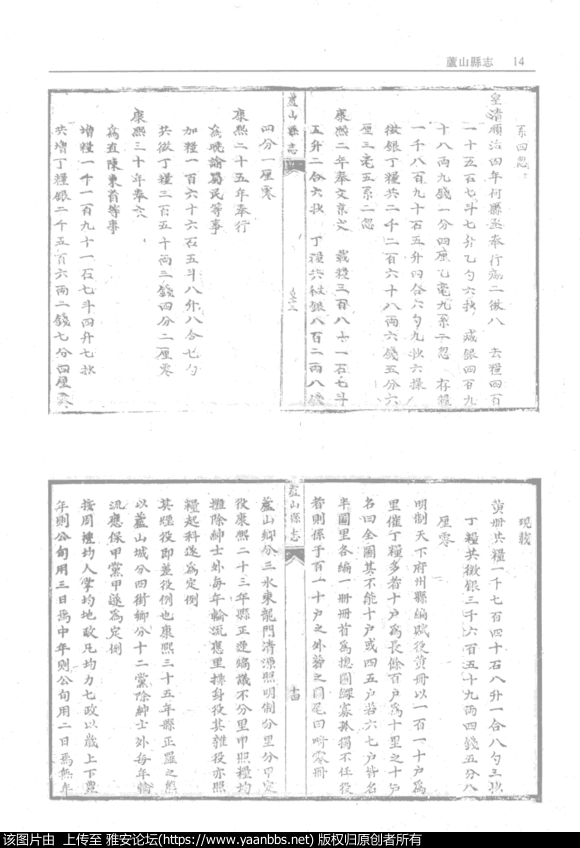 蘆山縣志 14
系四忽
皇清順治四年何縣丞奉行 去糧四百
一十五石七斗七升 六抄 減銀四百九
十八兩九錢一分四厘 毫九系二忽 存糧
一千八百九十石五升四合六勺九抄六撮
徵銀丁糧共二千二百六十八兩六錢五分六
厘三毫五系二忽
康熙二年奉文 載糧三百八十一石七斗
五升二合六抄 丁糧共徵銀八百二兩八錢
蘆山縣志
四分一厘零
康熙二十五年奉行
為曉諭蜀民等事
加糧一百六十六石五斗八升八合七勺
共徵丁糧三百五十兩三錢四分二厘零
康熙三十年奉文
為直陳東首等事
增糧一千一百九十一石七斗四升七抄
共增丁糧銀二千五百六兩二錢七分四厘零
現載
黃冊共糧一千七百四十石八升一合八勺三抄
丁糧共徵銀三千六百五十九兩四錢五分八
厘零
明制天下府州縣編賦役黃冊以一百一十戶為
里催丁糧多者十戶為長餘百戶為十里之十戶
名曰全圖其不能十戶或四五戶若六七戶皆名
半圖里各編一冊冊首為總圖鰥寡孤獨不任役
者則係于百一十戶之外著之圖尾曰畸零冊
蘆山縣志
十四
蘆山鄉分三水東龍門清源照明制分里分甲定
役康熙二十三年縣正 議不分里甲照糧均
攤除紳士外每年輪流應里操身役其雜役亦照
糧起科遂為定例
其煙役即差役例也康熙三十五年縣正羅之熊
以蘆山城分四街鄉分十二黨除紳士外每年輪
流應保甲黨甲遂為定例
按周禮均人掌均地政凡均力七政以歲上下豐
年則公旬用三日焉中年則公旬用二日焉無年
该图片由 上传至 雅安论坛(https://www.yaanbbs.net) 版权归原创者所有